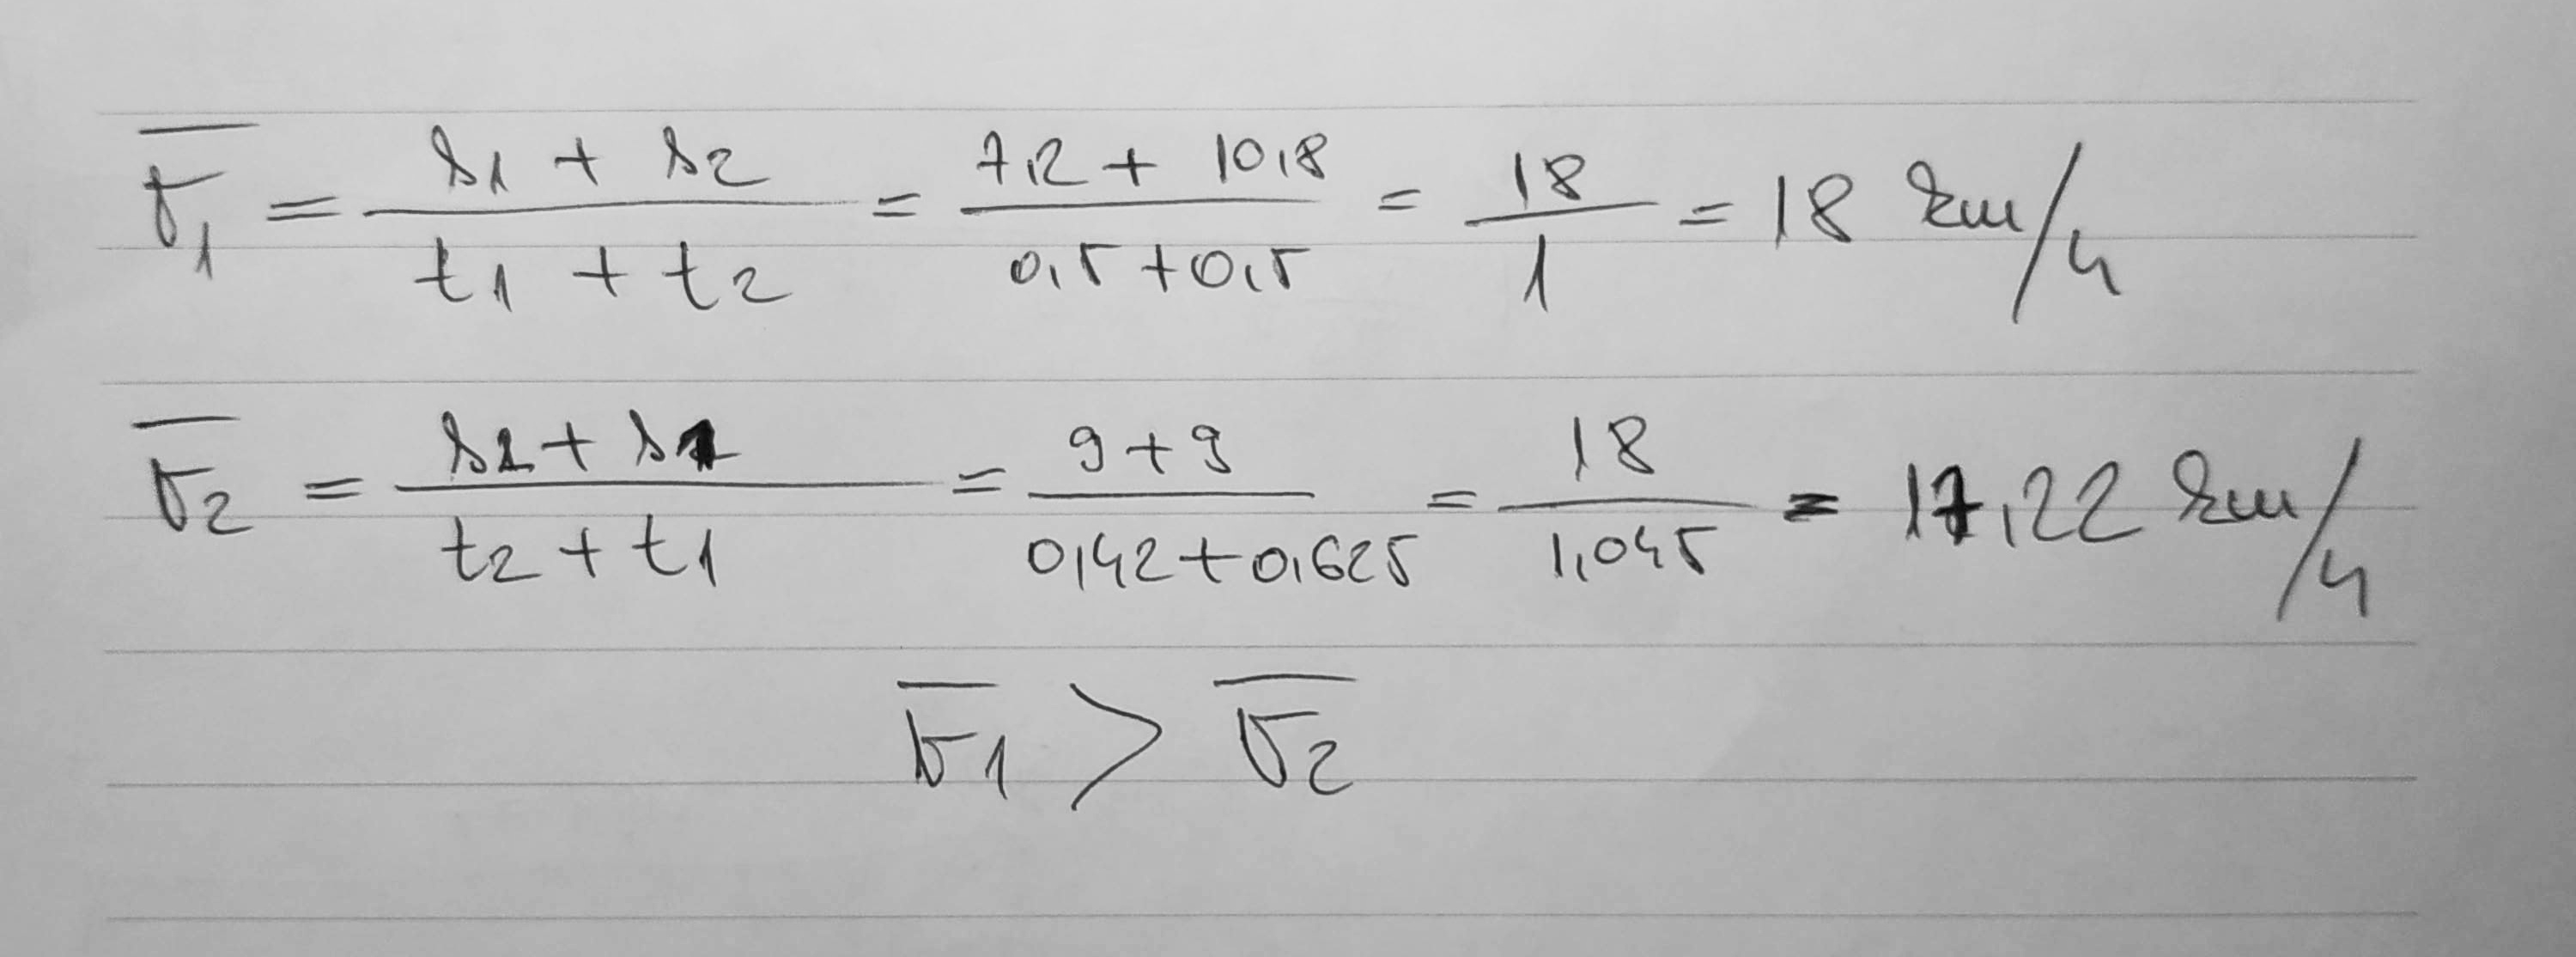 v̅₁ = (s₁ + s₂)/(t₁ + t₂) = (7,2 + 10,8)/(0,5 + 0,5) = 18/1 = 18 km/h
v̅₂ = (s₂ + s₁)/(t₂ + t₁) = (9 + 9)/(0,42 + 0,625) = 18/1,045 = 17,22 km/h
v̅₁ > v̅₂